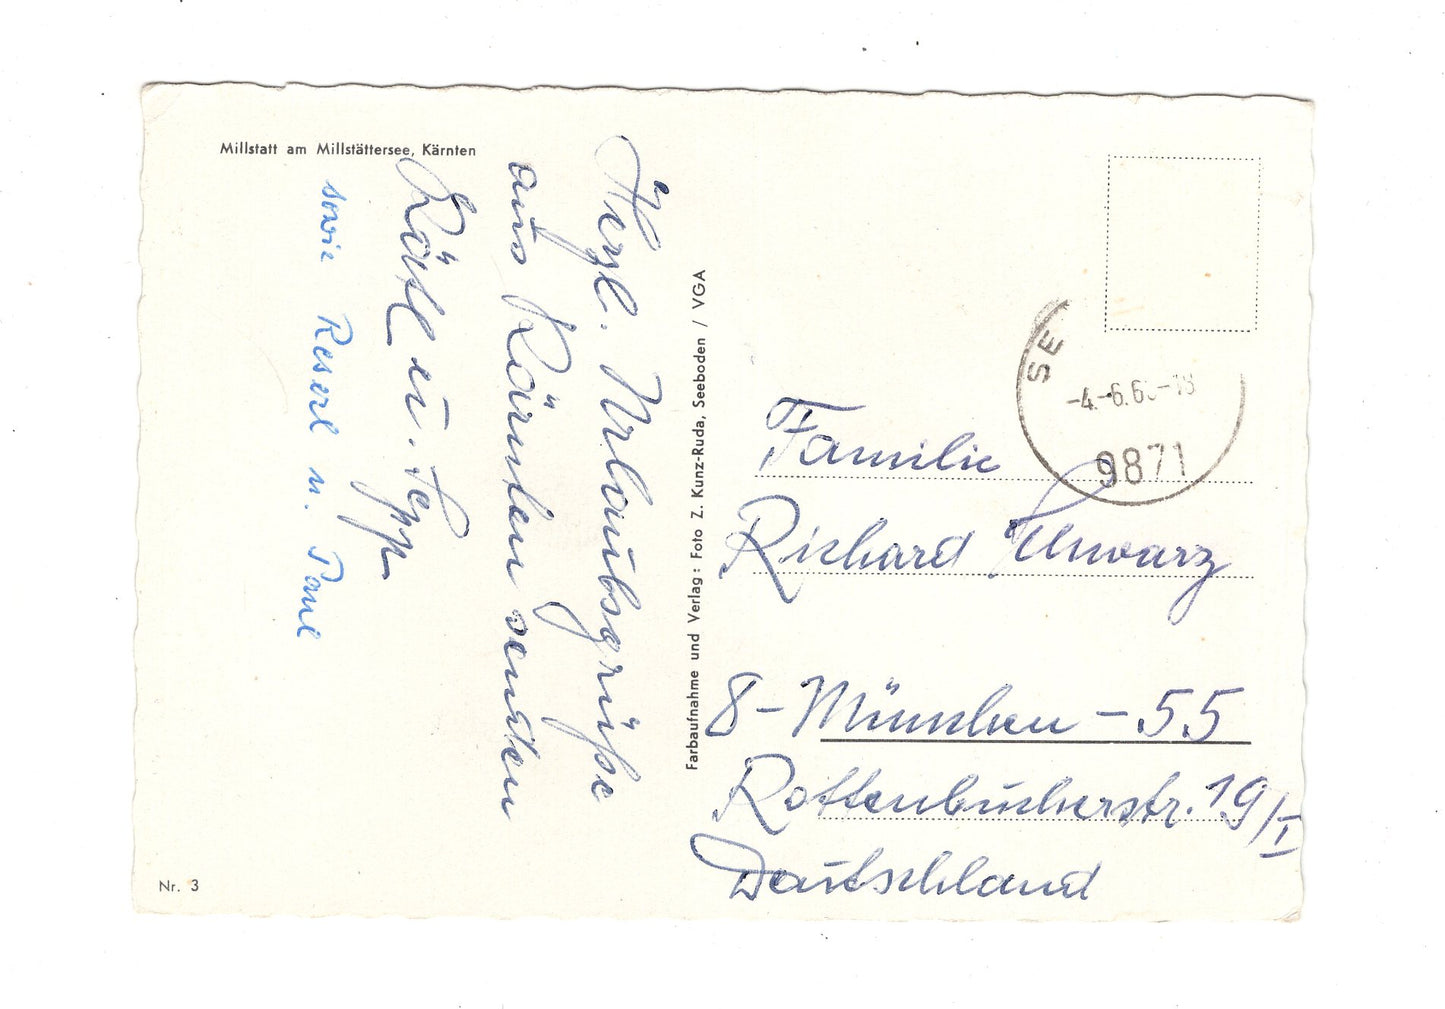 Millstatt am Millstättersee, Kärnten
Herzl. Urlaubsgrüße
aus Kärnten senden
u. Sepp
sowie Reserl u. Paul
Farbaufnahme und Verlag: Foto Z. Kunz-Ruda, Seeboden / VGA
SE
-4.-6.6
-18
9871
Familie
Richard Schwarz
8-München-55
Rottenbucherstr. 19/I
Deutschland
Nr. 3